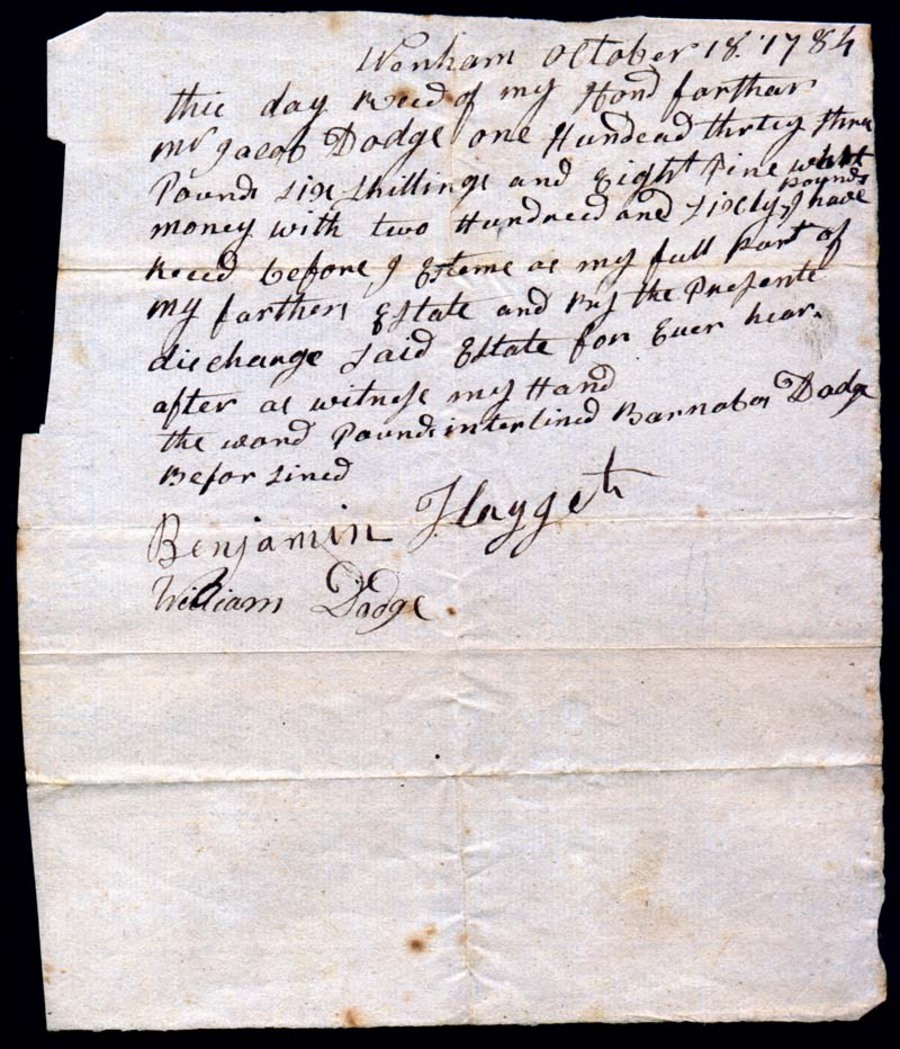 Wenham October 18. 1784
this day Reced of my Hond farthar
mr Jacob Dodge one Hundead thrtey three
Pounds six shillings and Eight Pine
pounds
money with two Hundreed and sixely, I have
Reced before I Esteme as my full Part of
my farthers Estate and By the Presents
discharge said Estate for Ever hear.
after as witness my Hand
the word Pounds interlined Barnabas Dodge
Befor sined
Benjamin Hagget
William Dodge